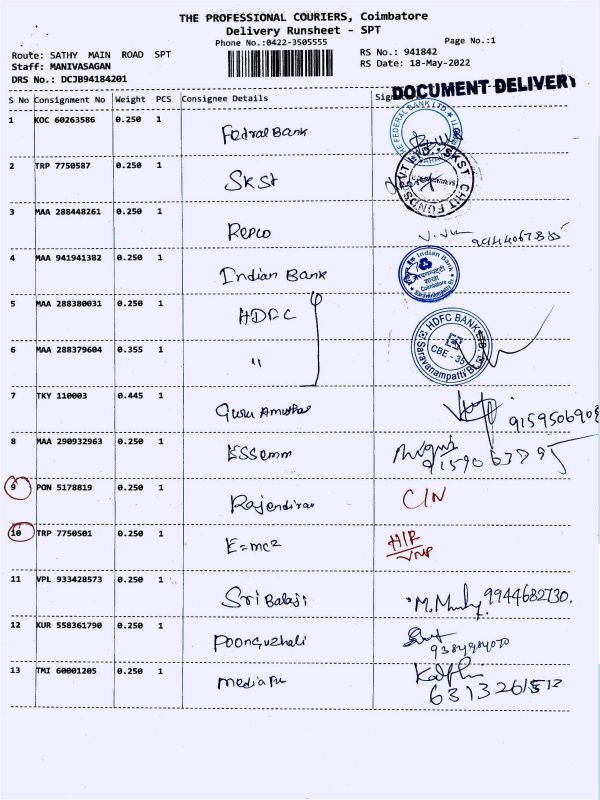 THE PROFESSIONAL COURIERS, Coimbatore
Delivery Runsheet - SPT
Phone No.:0422-3505555 Page No.:1
Route: SATHY MAIN ROAD SPT RS No.: 941842
Staff: MANIVASAGAN RS Date: 18-May-2022
DRS No.: DCJB94184201
DOCUMENT DELIVERY
S No Consignment No Weight PCS Consignee Details
1 KOC 60263586 0.250 1 Fedral Bank
THE FEDERAL BANK LTD
2 TRP 7750587 0.250 1 SKST
SKST CHIT FUNDS PVT LTD
3 MAA 288448261 0.250 1 Repco
4 MAA 941941382 0.250 1 Indian Bank
Indian Bank
Coimbatore
5 MAA 288380031 0.250 1 HDFC
HDFC BANK LTD.
CBE - 35
Saravanampatti
6 MAA 288379604 0.355 1 "
7 TKY 110003 0.445 1 Guru Amuthas
8 MAA 290932963 0.250 1 ESSemm
9 PON 5178819 0.250 1 Rajendiran C/N
10 TRP 7750501 0.250 1 E=mc2 H/R
11 VPL 933428573 0.250 1 Sri Balaji 9944682730.
12 KUR 558361790 0.250 1 Poonguzhali
13 TMI 60001205 0.250 1